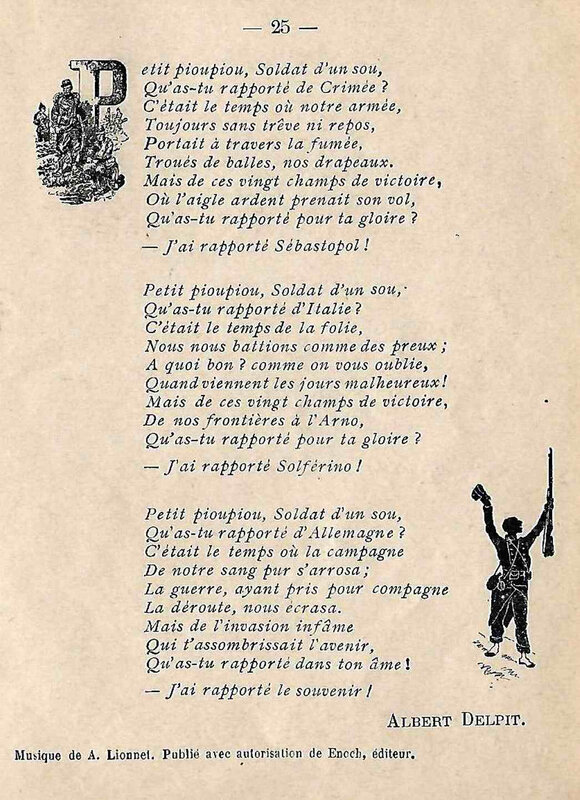 — 25 —
Petit pioupiou, Soldat d'un sou,
Qu'as-tu rapporté de Crimée ?
C'était le temps où notre armée,
Toujours sans trêve ni repos,
Portait à travers la fumée,
Troués de balles, nos drapeaux.
Mais de ces vingt champs de victoire,
Où l'aigle ardent prenait son vol,
Qu'as-tu rapporté pour ta gloire ?
— J'ai rapporté Sébastopol !
Petit pioupiou, Soldat d'un sou,
Qu'as-tu rapporté d'Italie ?
C'était le temps de la folie,
Nous nous battions comme des preux ;
A quoi bon ? comme on vous oublie,
Quand viennent les jours malheureux !
Mais de ces vingt champs de victoire,
De nos frontières à l'Arno,
Qu'as-tu rapporté pour ta gloire ?
— J'ai rapporté Solférino !
Petit pioupiou, Soldat d'un sou,
Qu'as-tu rapporté d'Allemagne ?
C'était le temps où la campagne
De notre sang pur s'arrosa ;
La guerre, ayant pris pour compagne
La déroute, nous écrasa.
Mais de l'invasion infâme
Qui t'assombrissait l'avenir,
Qu'as-tu rapporté dans ton âme !
— J'ai rapporté le souvenir !
ALBERT DELPIT.
Musique de A. Lionnet. Publié avec autorisation de Enoch, éditeur.